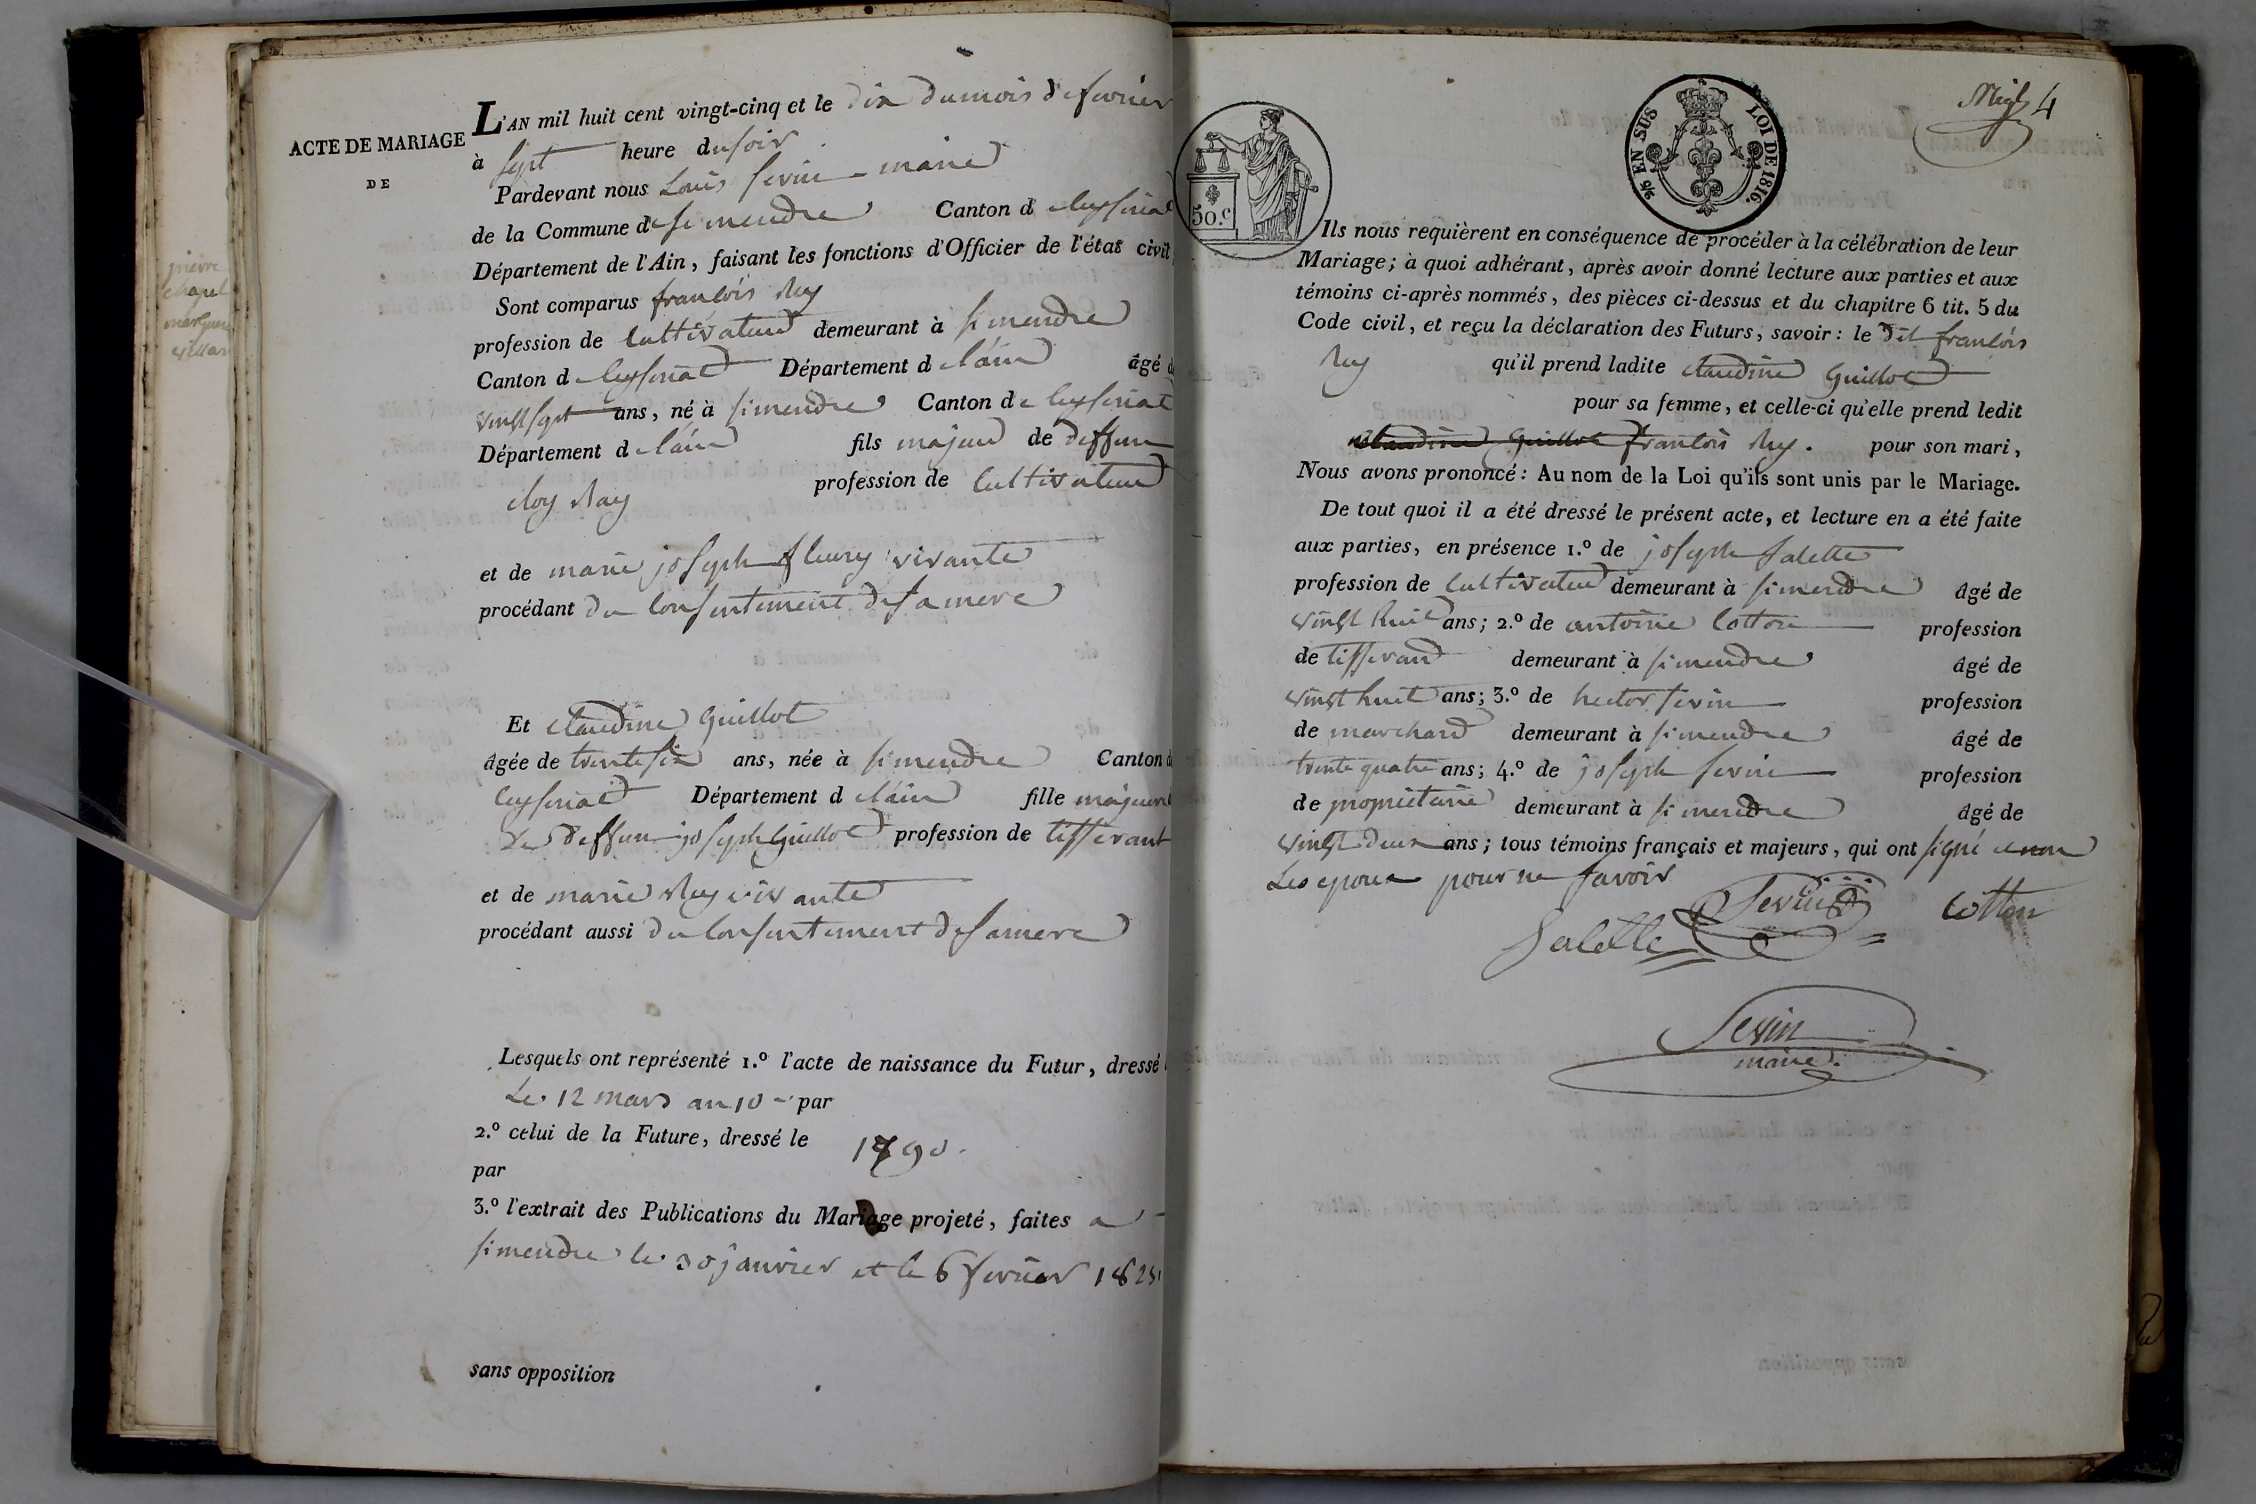 ACTE DE MARIAGE
DE
L'AN mil huit cent vingt-cinq et le dix du mois de fevrier
à sept heure du soir
Pardevant nous Louis sevin maire
de la Commune de simendre Canton d ceyseriat
Département de l'Ain, faisant les fonctions d'Officier de l'état civil
Sont comparus francois Rey
profession de cultivateur demeurant à simendre
Canton d ceyseriat Département d e l'ain âgé d
vingt sept ans, né à simendre Canton de ceyseriat
Département d e l'ain fils majeur de deffun
cloy Ray profession de cultivateur
et de marie joseph fleury vivante
procédant du consentement de sa mere
Et claudine Guillot
âgée de trente six ans, née à simendre Canton d
ceyseriat Département d e l'ain fille majeure
de deffun joseph Guillot profession de tisserant
et de marie Rey vivante
procédant aussi du consentement de sa mere
Lesquels ont représenté 1.º l'acte de naissance du Futur, dressé
Le 12 mars an 10 par
2.º celui de la Future, dressé le 1790.
par
3.º l'extrait des Publications du Mariage projeté, faites a
simendre le 30 janvier et le 6 fevrier 1825
sans opposition
pierre
chapel
4
25 EN SUS LOI DE 1816.
50.c
Ils nous requièrent en conséquence de procéder à la célébration de leur
Mariage; à quoi adhérant, après avoir donné lecture aux parties et aux
témoins ci-après nommés, des pièces ci-dessus et du chapitre 6 tit. 5 du
Code civil, et reçu la déclaration des Futurs, savoir: le dit francois
Rey qu'il prend ladite claudine Guillot
pour sa femme, et celle-ci qu'elle prend ledit
claudine Guillot francois Rey. pour son mari,
Nous avons prononcé: Au nom de la Loi qu'ils sont unis par le Mariage.
De tout quoi il a été dressé le présent acte, et lecture en a été faite
aux parties, en présence 1.º de joseph salette
profession de cultivateur demeurant à simendre âgé de
vingt huit ans; 2.º de antoine cotton profession
de tisserand demeurant à simendre âgé de
vingt huit ans; 3.º de hector sevin profession
de marchand demeurant à simendre âgé de
trente quatre ans; 4.º de joseph sevin profession
de propriétaire demeurant à simendre âgé de
vingt deux ans; tous témoins français et majeurs, qui ont signé et non
Les epoux pour ne savoir
Sevin Cotton
Salette
Sevin
maire